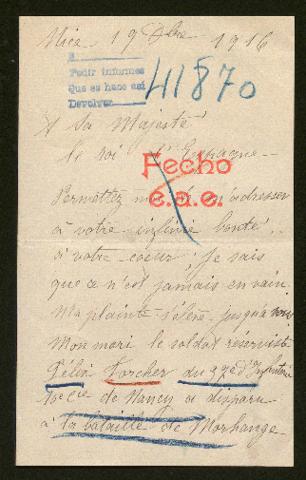 Nice 19 Xbre 1916
R
Pedir informes
Que es hace así
Devolver
41870
A Sa Majesté
le roi d'Espagne
Fecho
e.a.c.
Permettez moi de m'adresser
à votre infinie bonté,
à votre coeur; je sais
que ce n'est jamais en vain.
Ma plainte s'élève jusqu'à vous
Mon mari le soldat réserviste
Félix Forcher du 79e d'Infanterie
de Nancy a disparu
à la bataille de Morhange